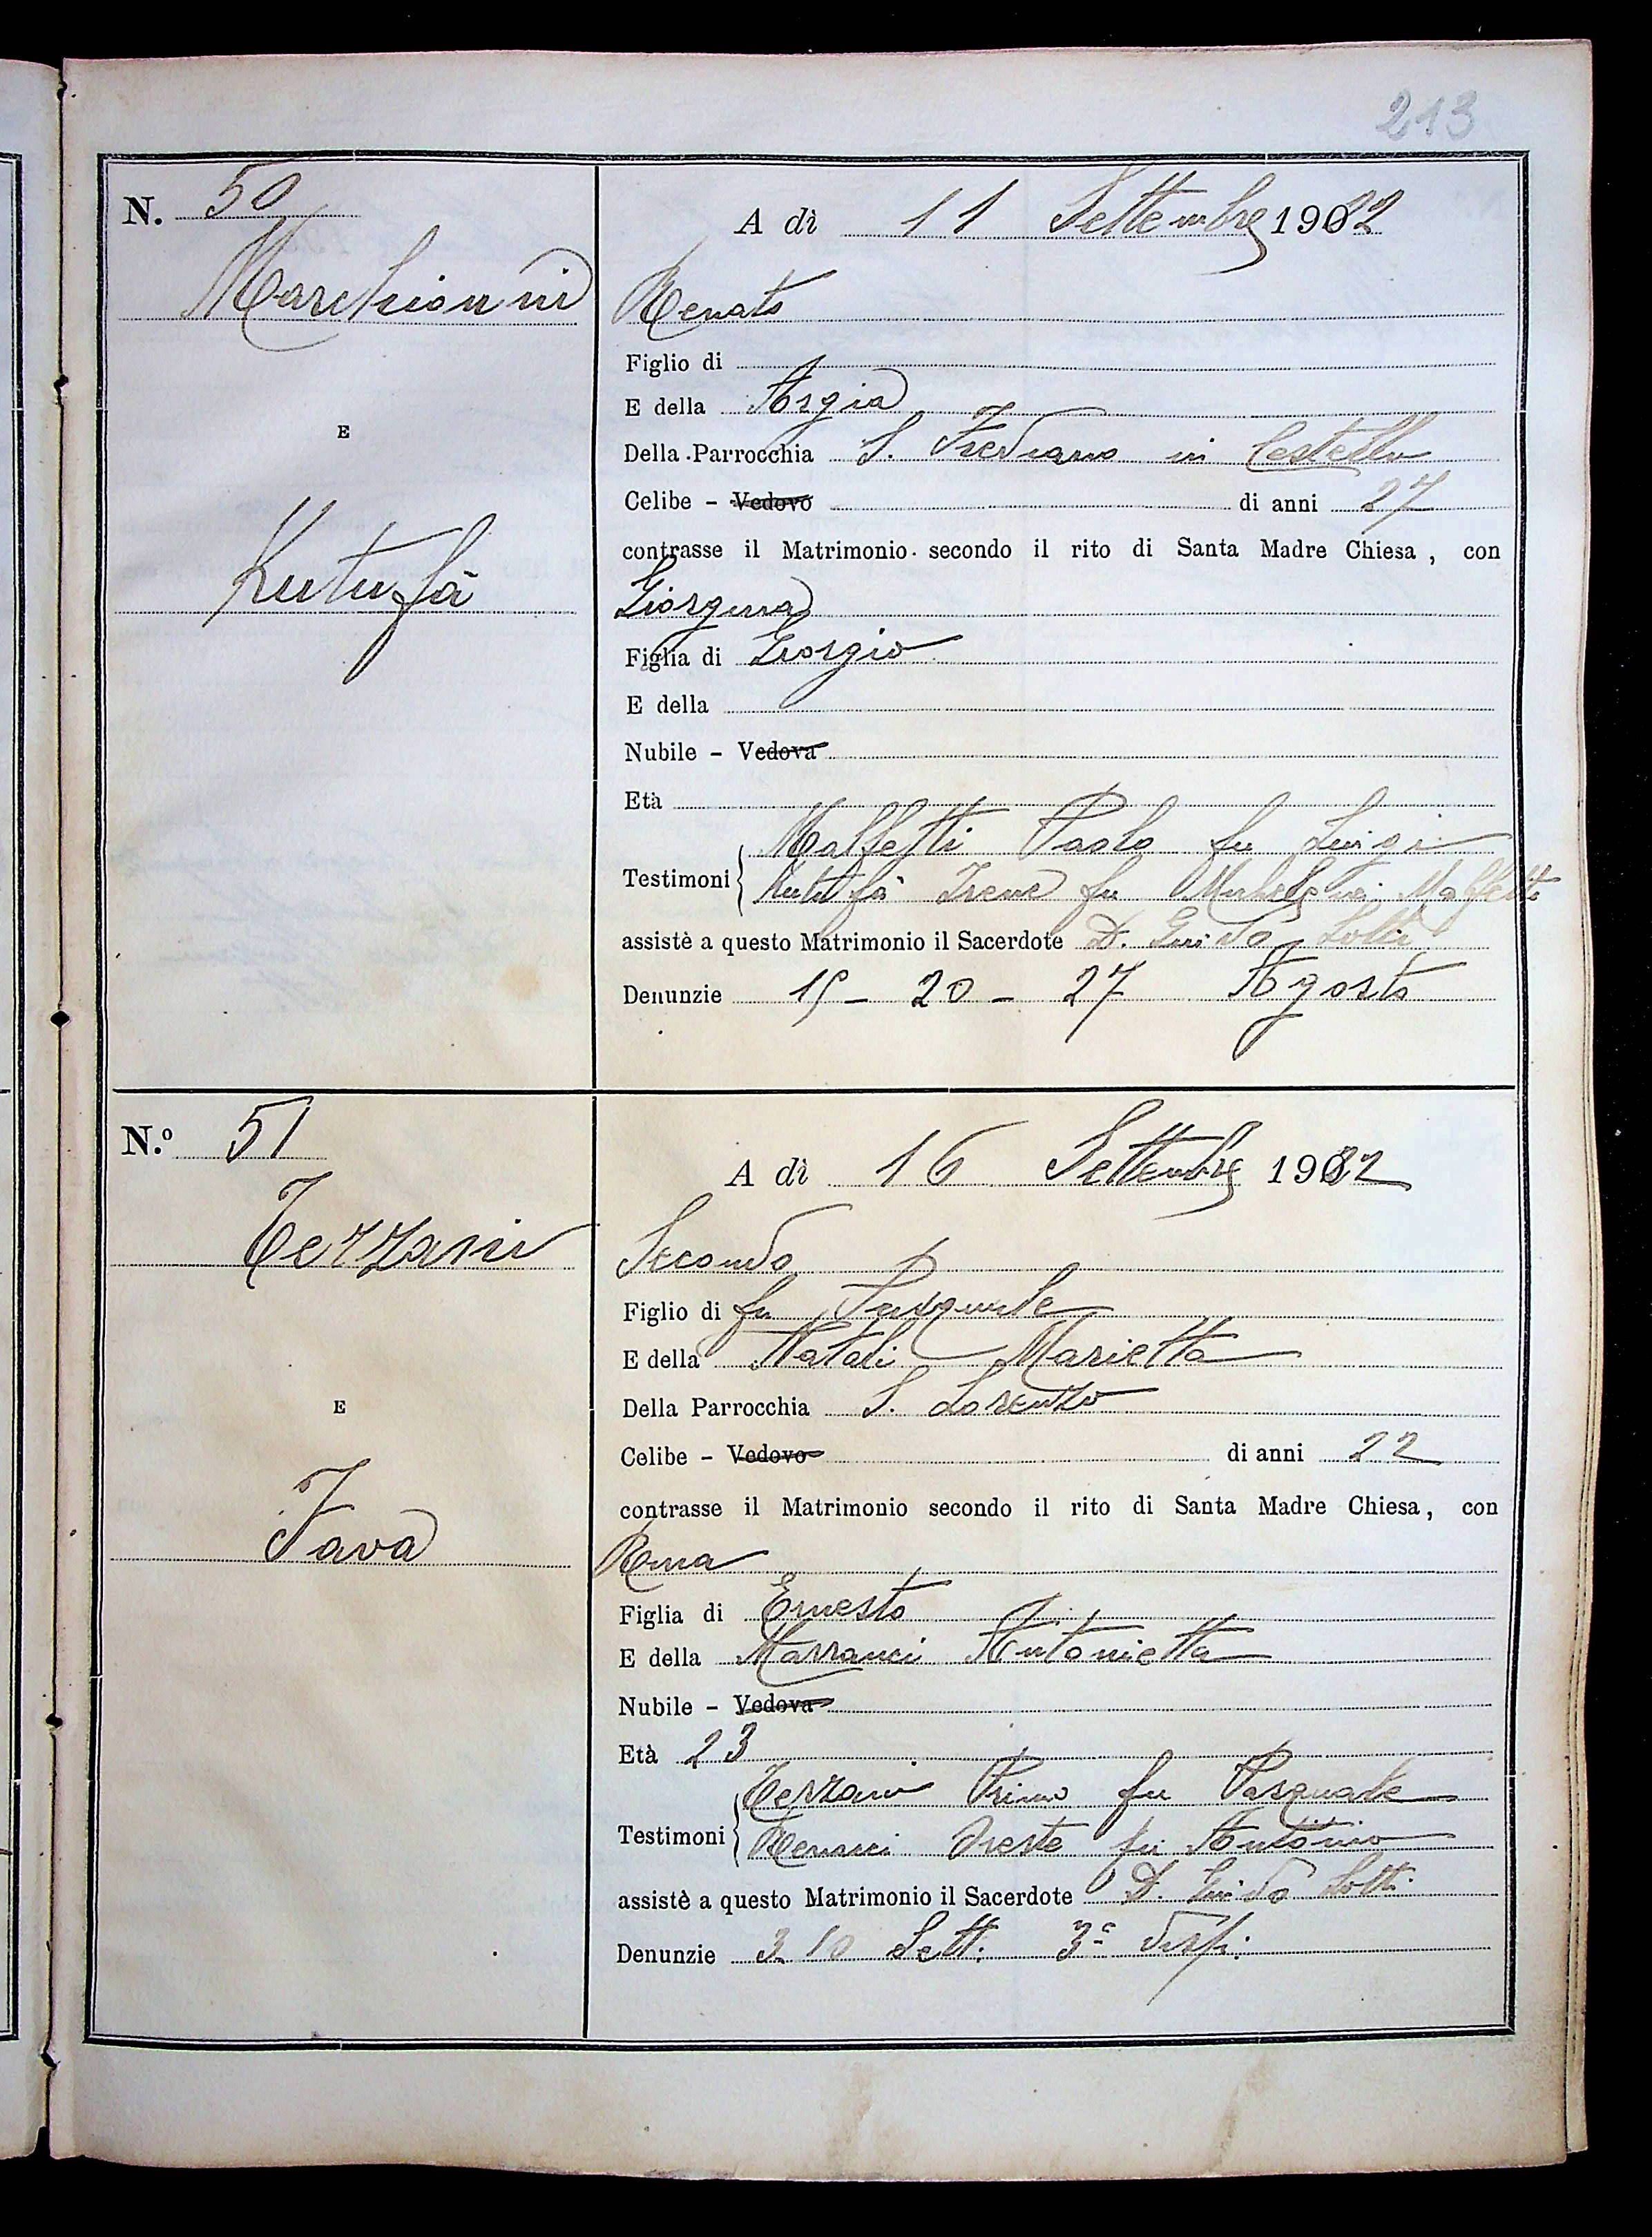 213
N. 50
A dì 11 Settembre 1922
Marchionni
Renato
Figlio di
E della Argia
E
Della Parrocchia S. Frediano in Cestello
Celibe - Vedovo di anni 27
contrasse il Matrimonio secondo il rito di Santa Madre Chiesa, con
Kutufà
Giorgina
Figlia di Giorgio
E della
Nubile - Vedova
Età
Malfetti Paolo fu Luigi
Testimoni
Kutufà Irene fu Michele nei Malfetti
assistè a questo Matrimonio il Sacerdote D. Guido Lotti
Denunzie 15 - 20 - 27 Agosto
N.º 51
A dì 16 Settembre 1922
Terzani
Secondo
Figlio di fu Pasquale
E della Natali Marietta
E
Della Parrocchia S. Lorenzo
Celibe - Vedovo di anni 22
contrasse il Matrimonio secondo il rito di Santa Madre Chiesa, con
Fava
Figlia di Ernesto
E della Marranci Antonietta
Nubile - Vedova
Età 23
Terzani Primo fu Pasquale
Testimoni
Oreste fu Antonio
assistè a questo Matrimonio il Sacerdote D. Guido Lotti
Denunzie 3 10 Sett. 3ª disp.